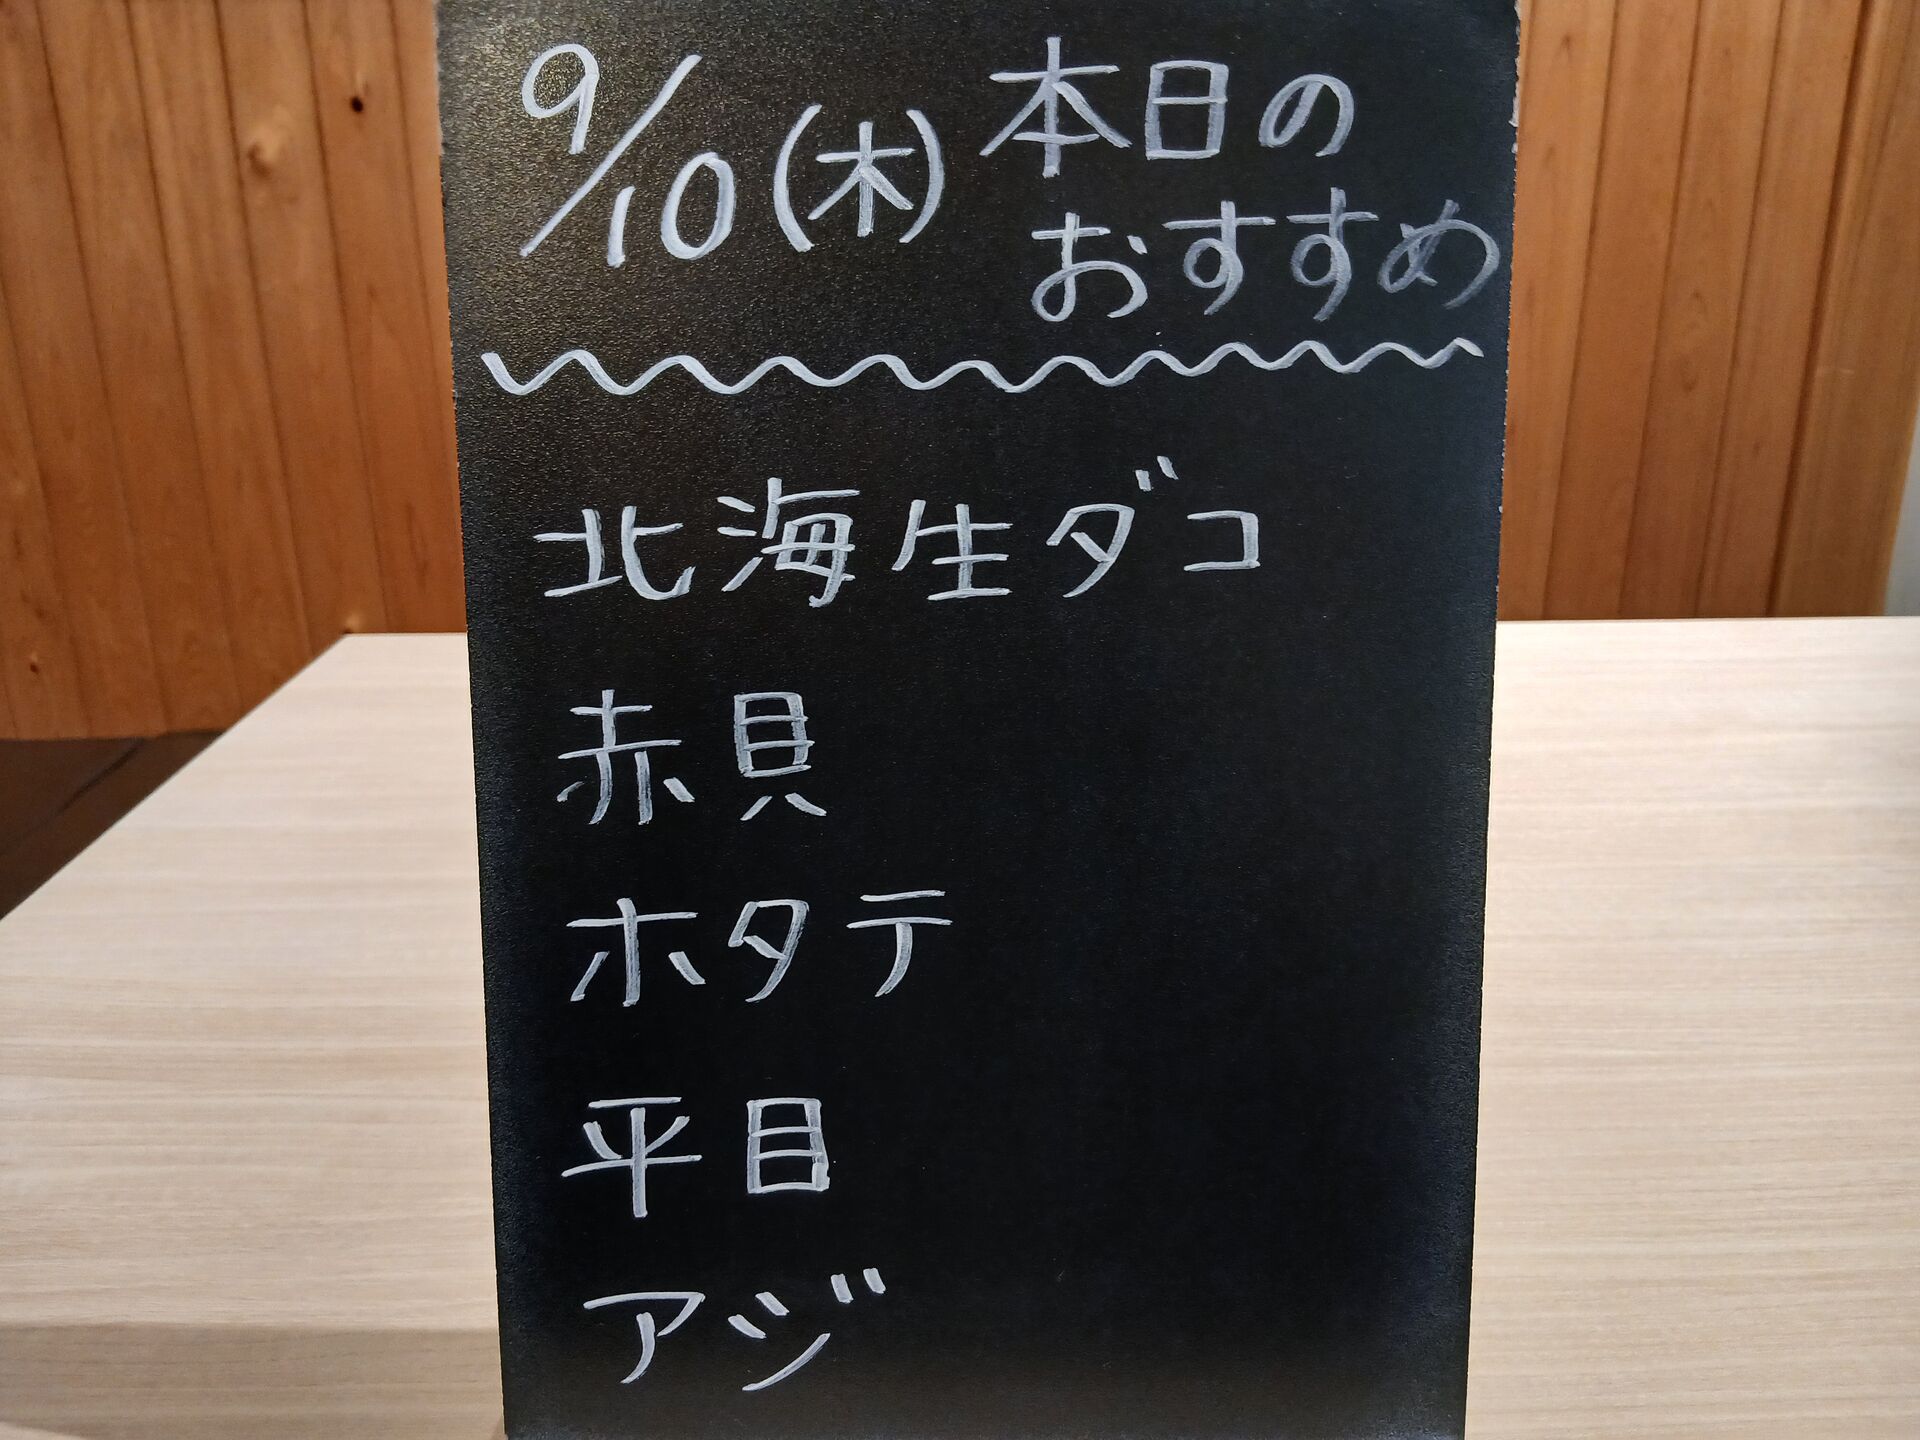 9/10(木) 本日の
おすすめ
北海生ダコ
赤貝
ホタテ
平目
アジ